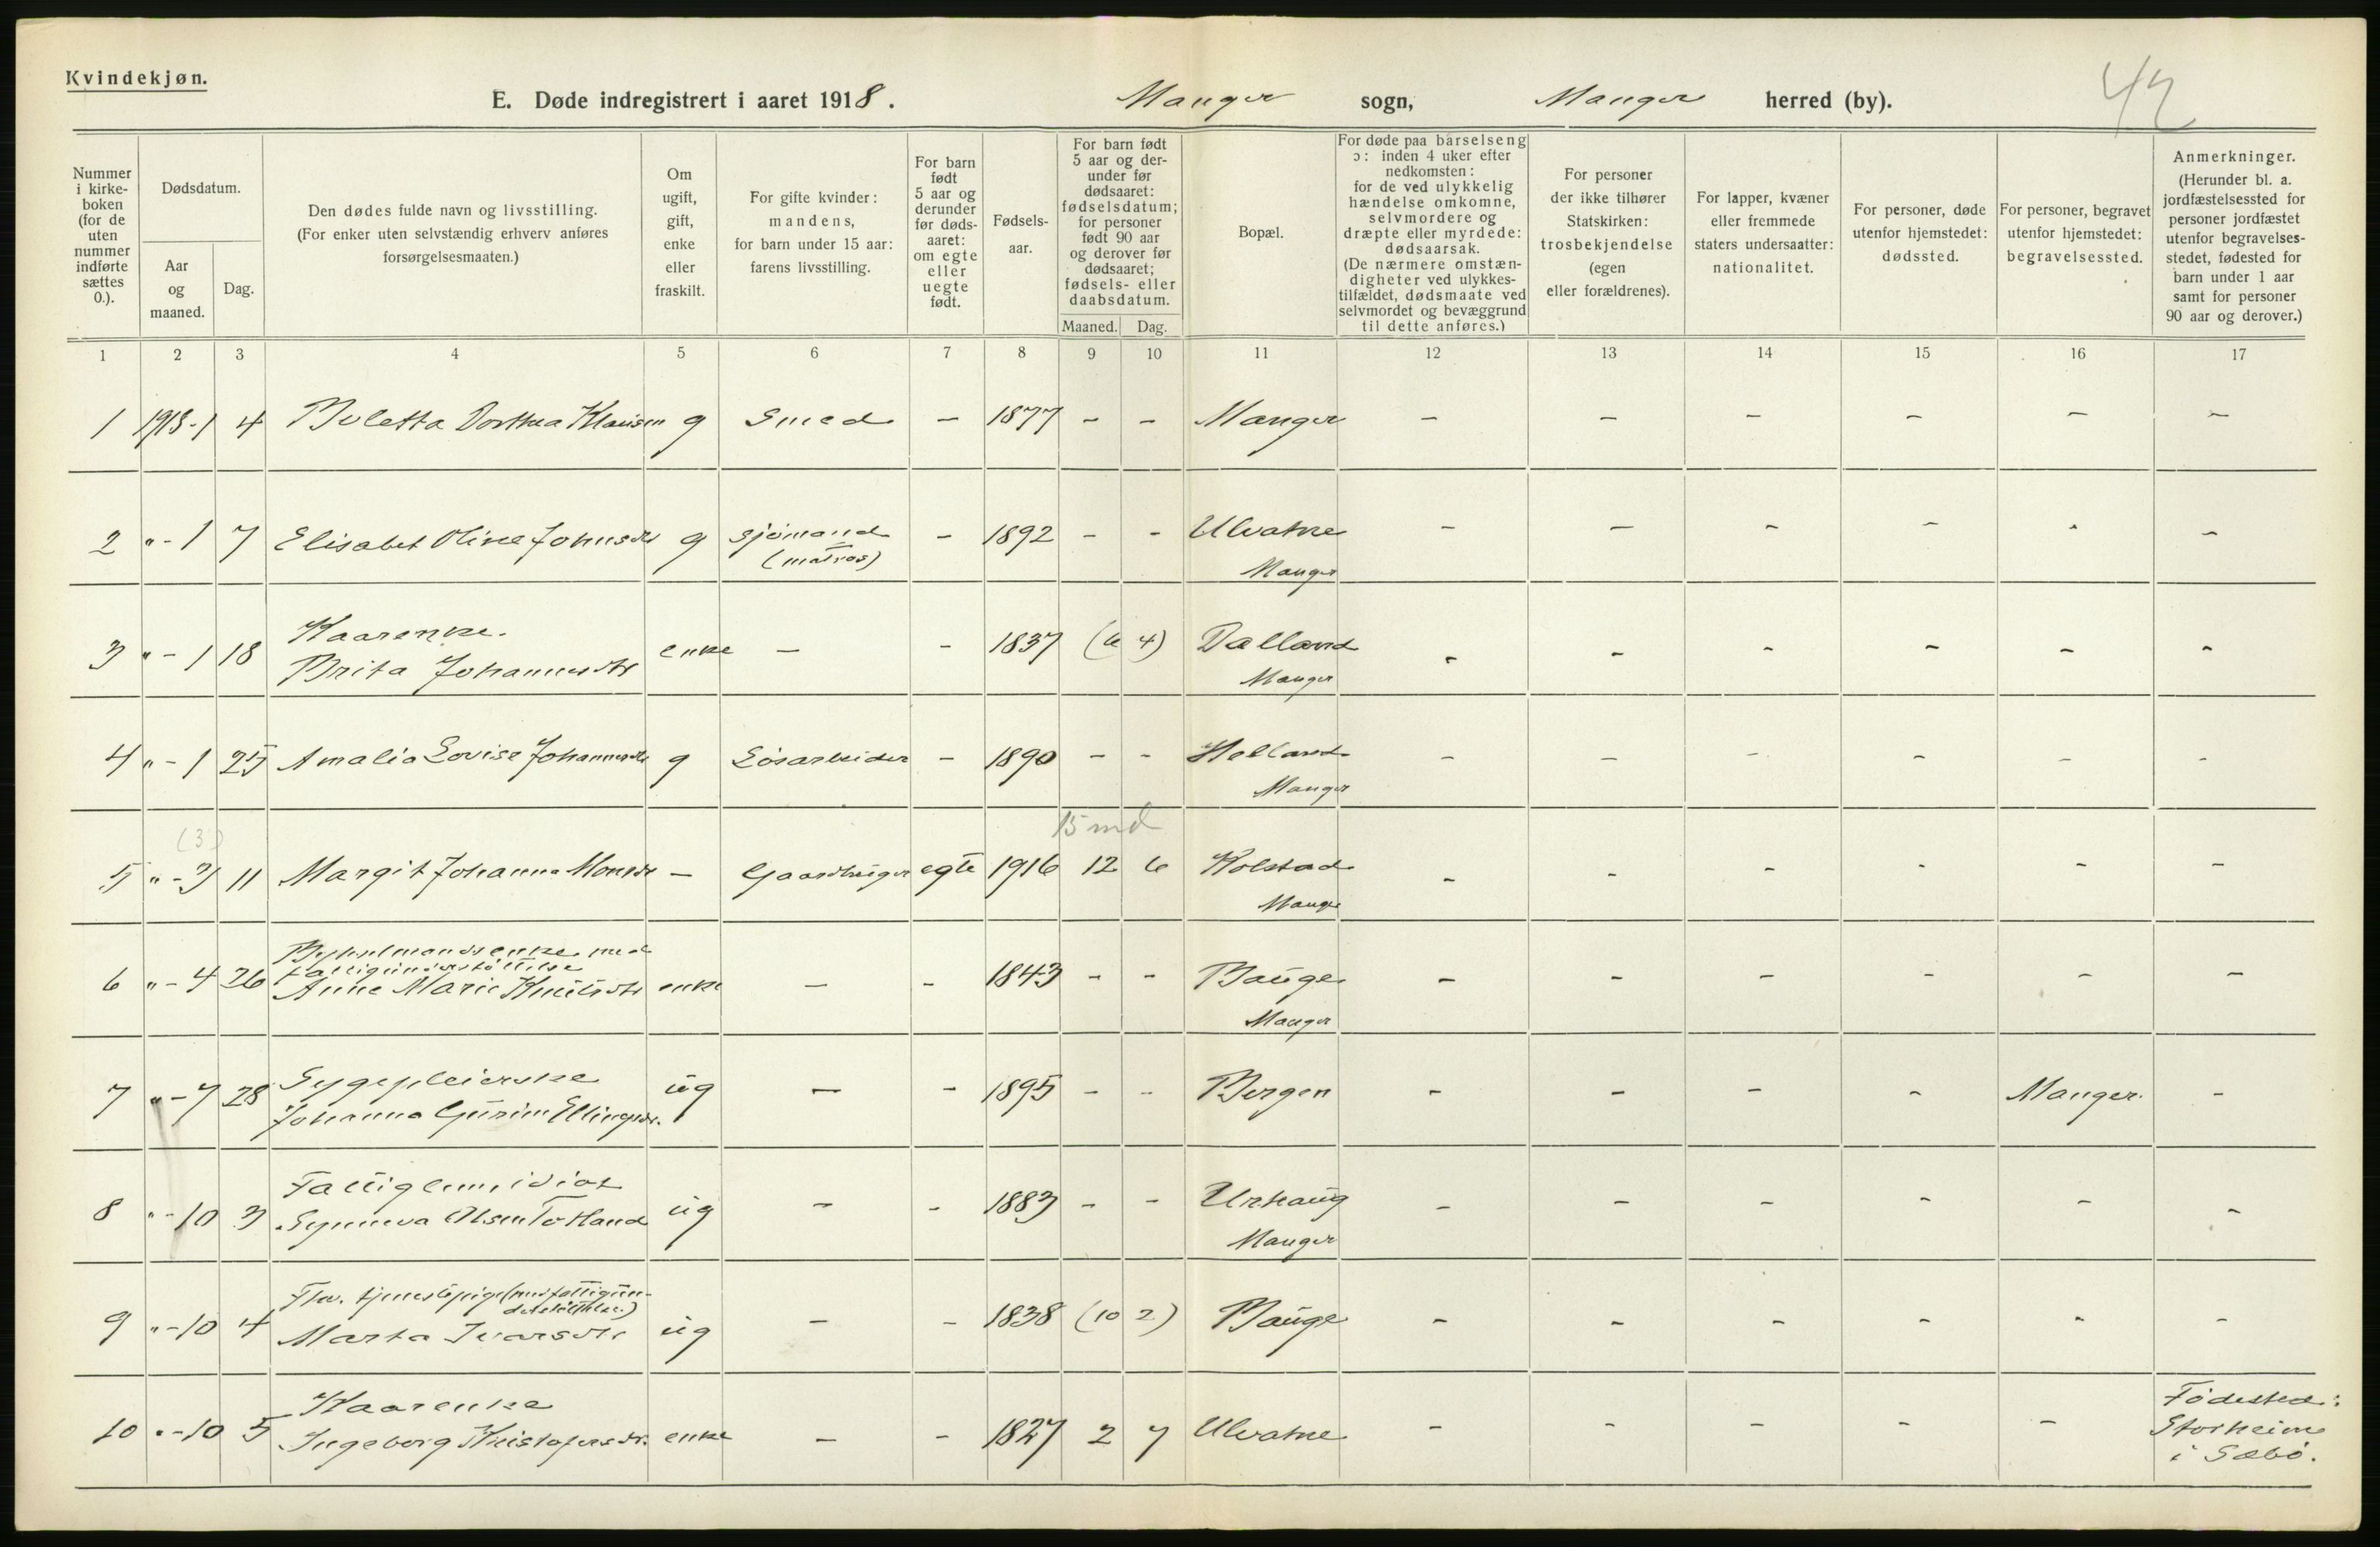 Kvindekjøn.
E. Døde indregistrert i aaret 1918. Manger sogn, Manger herred (by). 42
Nummer i kirkeboken (for de uten nummer indførte sættes 0.).
Dødsdatum.
Aar og maaned.
Dag.
Den dødes fulde navn og livsstilling.
(For enker uten selvstændig erhverv anføres forsørgelsesmaaten.)
Om ugift, gift, enke eller fraskilt.
For gifte kvinder: mandens, for barn under 15 aar: farens livsstilling.
For barn født 5 aar og derunder før dødsaaret: om egte eller uegte født.
Fødselsaar.
For barn født 5 aar og derunder før dødsaaret: fødselsdatum; for personer født 90 aar og derover før dødsaaret; fødsels- eller daabsdatum.
Maaned. Dag.
Bopæl.
For døde paa barselseng ɔ: inden 4 uker efter nedkomsten: for de ved ulykkelig hændelse omkomne, selvmordere og dræpte eller myrdede: dødsaarsak.
(De nærmere omstændigheter ved ulykkestilfældet, dødsmaate ved selvmordet og bevæggrund til dette anføres.)
For personer der ikke tilhører Statskirken: trosbekjendelse (egen eller forældrenes).
For lapper, kvæner eller fremmede staters undersaatter: nationalitet.
For personer, døde utenfor hjemstedet: dødssted.
For personer, begravet utenfor hjemstedet: begravelsessted.
Anmerkninger.
(Herunder bl. a. jordfæstelsessted for personer jordfæstet utenfor begravelsesstedet, fødested for barn under 1 aar samt for personer 90 aar og derover.)
1 2 3 4 5 6 7 8 9 10 11 12 13 14 15 16 17
1 1918-1 4 Boletta Dorthea Klausen g Smed - 1877 - - Manger - - - - - -
2 "-1 7 Elisabet Oline Johnsdr g Sjømand - 1892 - - Ulvatne - - - - - -
(matros) Manger
Kaarenke.
3 "-1 18 Brita Johannesdtr enke - - 1837 (6 4) Dalland - - - - - -
Manger
4 "-1 25 Amalia Lovise Johannesdtr g Løsarbeider - 1890 - - Helland - - - - - -
Manger
(3) 15 md
5 "-3 11 Margit Johanna Monsdr - Gaardbruger egte 1916 12 6 Kolstad - - - - - -
Manger
enke med
fattigunderstøttelse
6 "-4 26 Anne Marie Knutsdtr enke - - 1843 - - Bauge - - - - - -
Manger
Sygepleierske
7 "-7 28 Johanna Gurine Ellingsdr. ug - - 1895 - - Bergen - - - - Manger. -
Fattiglem, idiot
8 "-10 3 Synneva Olsen Totland ug - - 1883 - - Urhaug - - - - - -
Manger
Fhv. tjenestepige (med fattigun-
derstøttelse.)
9 "-10 4 Marta Ivarsdtr ug - - 1838 (10 2) Bauge - - - - - -
Kaarenke
10 "-10 5 Ingeborg Kristofersdr. enke - - 1827 2 7 Ulvatne - - - - - Fødested:
Storheim
i Sæbø.